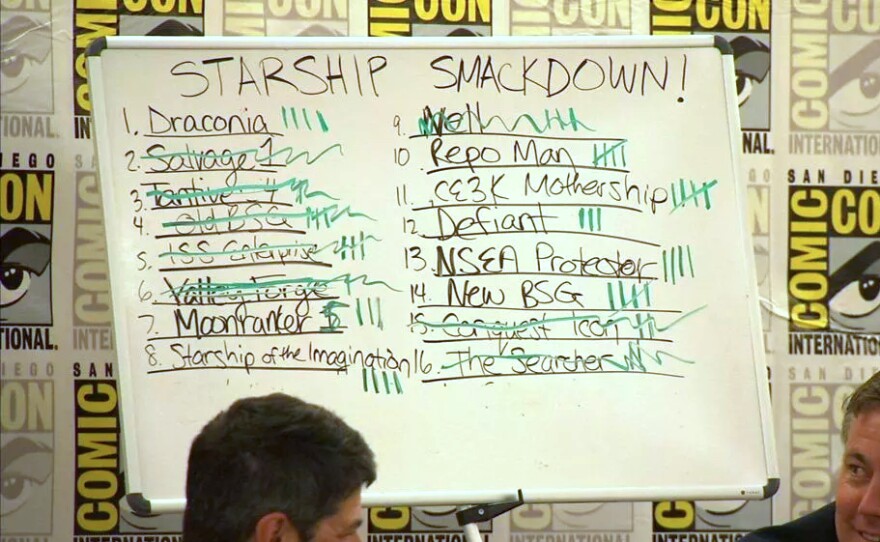 STARSHIP SMACKDOWN!
1. Draconia
2. Salvage 1
3. Tantive 4
4. Old BSG
5. ISS Enterprise
6. Valley Forge
7. Moonranker 5
8. Starship of the Imagination
9.
10 Repo Man
11. CE3K Mothership
12. Defiant
13 NSEA Protector
14. New BSG
15. Conquest Icon
16. The Searcher
COMIC CON
INTERNATIONAL
SAN DIEGO
COMIC CON
INTERNATIONAL